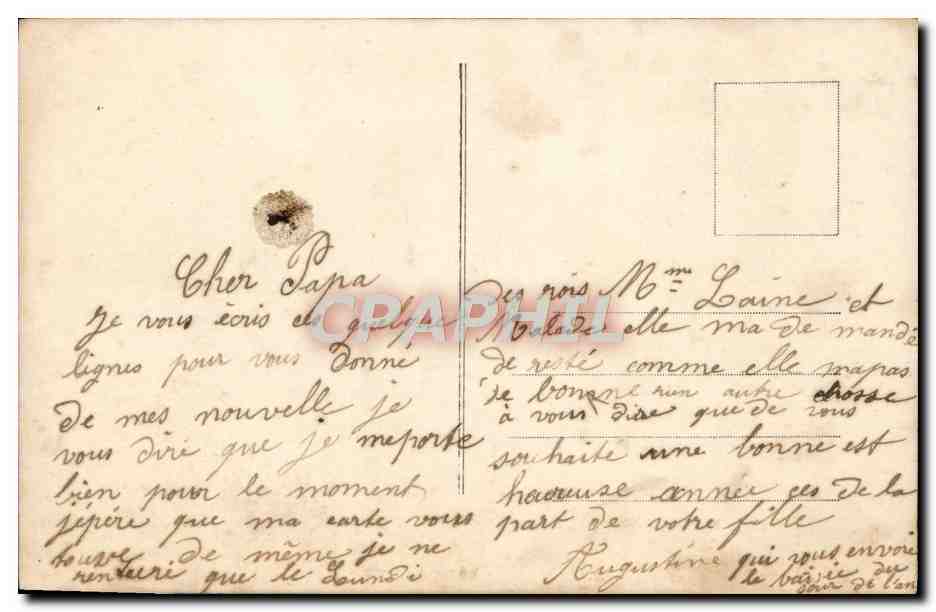 Cher Papa
Je vous écris ces quelque
lignes pour vous donne
de mes nouvelle je
vous dire que je me porte
bien pour le moment
j'épére que ma carte vous
touve de même je ne
renteeré que le Lundi
des rois Mme Laine et
Malade elle ma de mandé
de resté comme elle ma pas
de bonne rien autre chosse
à vous dire que de vous
souhaité une bonne est
haureuse année ces de la
part de votre fille
Augustine qui vous envoie
le baisié du
jour de l'an
CRAPHIL